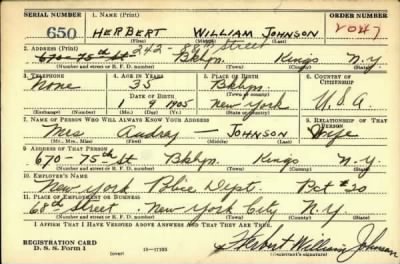 SERIAL NUMBER 1. NAME (Print) ORDER NUMBER
650 HERBERT WILLIAM JOHNSON 2047
(First) (Middle) (Last)
2. ADDRESS (Print) 342 - 88th Street
670 - 75th St Bklyn. Kings N.Y
(Number and street or R. F. D. number) (Town) (County) (State)
3. TELEPHONE 4. AGE IN YEARS 5. PLACE OF BIRTH 6. COUNTRY OF CITIZENSHIP
None 35 Bklyn.
DATE OF BIRTH (Town or county)
1 9 1905 New York U.S.A.
(Exchange) (Number) (Mo.) (Day) (Yr.) (State or country)
7. NAME OF PERSON WHO WILL ALWAYS KNOW YOUR ADDRESS 8. RELATIONSHIP OF THAT PERSON
Mrs Audrey — JOHNSON Wife
(Mr., Mrs., Miss) (First) (Middle) (Last)
9. ADDRESS OF THAT PERSON
670 - 75th St Bklyn. Kings N.Y.
(Number and street or R. F. D. number) (Town) (County) (State)
10. EMPLOYER'S NAME
New York Police Dept. Pct #20
11. PLACE OF EMPLOYMENT OR BUSINESS
68th Street. New York City N.Y.
(Number and street or R. F. D. number) (Town) (County) (State)
I AFFIRM THAT I HAVE VERIFIED ABOVE ANSWERS AND THAT THEY ARE TRUE.
REGISTRATION CARD
D. S. S. Form 1 (over) 16—17105 Herbert William Johnson
(Registrant's signature)